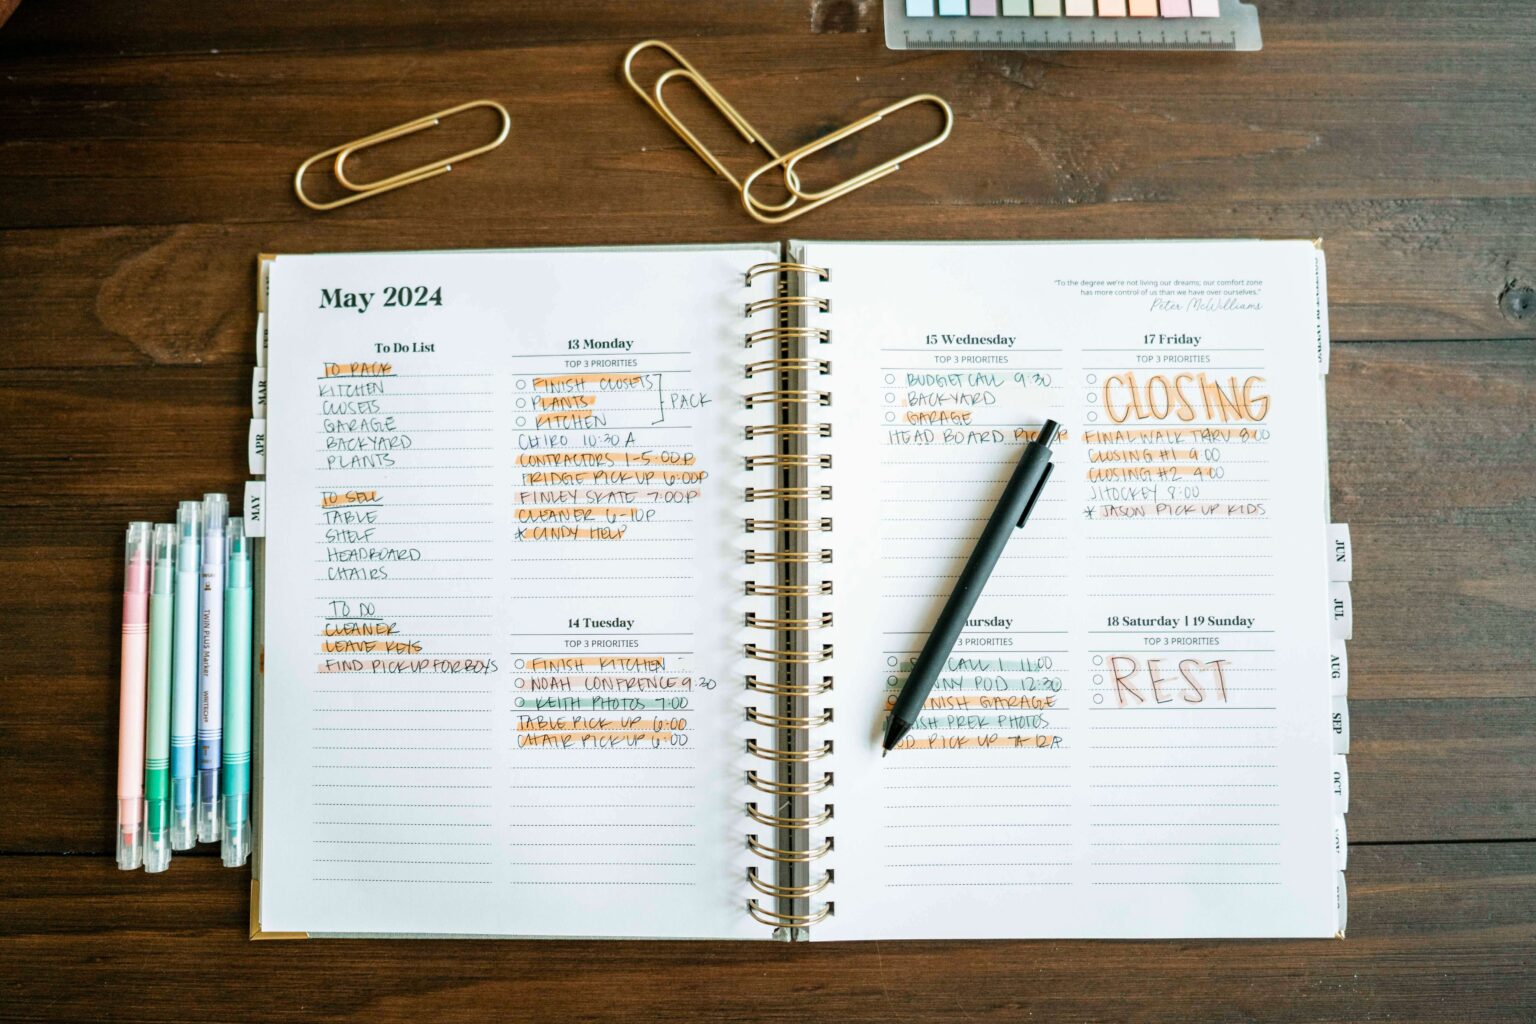 May 2024
To Do List
TO PACK
KITCHEN
CLOSETS
GARAGE
BACKYARD
PLANTS
TO SELL
TABLE
SHELF
HEADBOARD
CHAIRS
TO DO
CLEANER
LEAVE KEYS
FIND PICKUP FOR BOYS
13 Monday
TOP 3 PRIORITIES
FINISH CLOSETS
PLANTS
KITCHEN
PACK
CHIRO 10:30 A
CONTRACTORS 1-5:00P
FRIDGE PICK UP 6:00P
FINLEY SKATE 7:00P
CLEANER 6-10P
* CINDY HELP
14 Tuesday
TOP 3 PRIORITIES
FINISH KITCHEN
NOAH CONFRENCE 9:30
KEITH PHOTOS 7:00
TABLE PICK UP 6:00
CHAIR PICK UP 6:00
"To the degree we're not living our dreams; our comfort zone
has more control of us than we have over ourselves."
Peter McWilliams
15 Wednesday
TOP 3 PRIORITIES
BUDGET CALL 9:30
BACKYARD
GARAGE
HEAD BOARD
17 Friday
TOP 3 PRIORITIES
CLOSING
FINAL WALK THRU 8:00
CLOSING #1 9:00
CLOSING #2 4:00
J HOCKEY 8:00
* JASON PICK UP KIDS
TOP 3 PRIORITIES
CALL 1 11:00
POD 12:30
GARAGE
PREK PHOTOS
PICK UP
18 Saturday | 19 Sunday
TOP 3 PRIORITIES
REST
MAR
APR
MAY
JUN
JUL
AUG
SEP
OCT
TWIN PLUS Marker